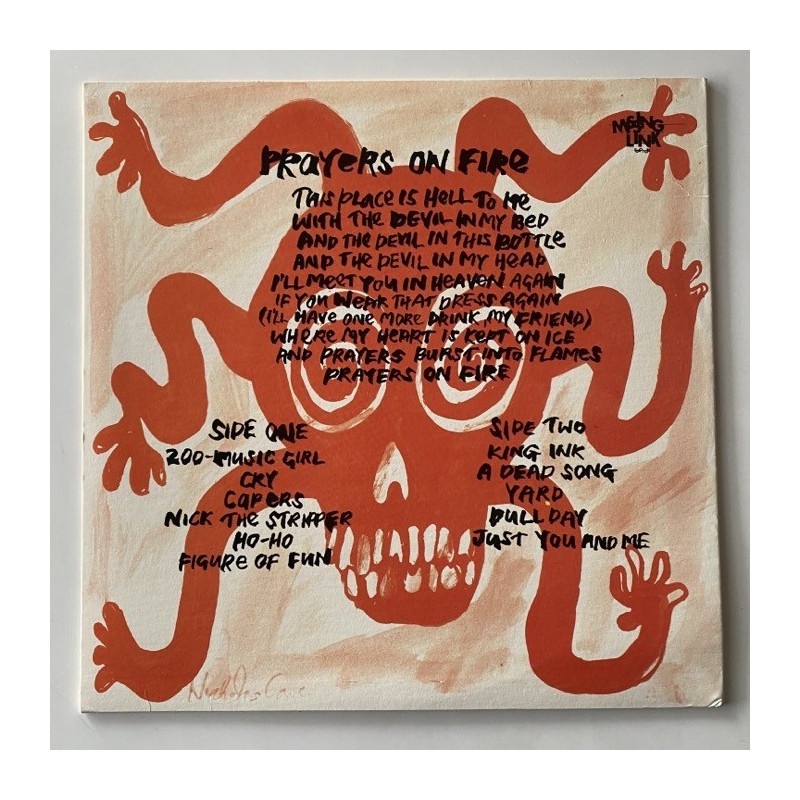 MISSING
LINK
PRAYERS ON FIRE
THIS PLACE IS HELL TO ME
WITH THE DEVIL IN MY BED
AND THE DEVIL IN THIS BOTTLE
AND THE DEVIL IN MY HEAD
I'LL MEET YOU IN HEAVEN AGAIN
IF YOU WEAR THAT DRESS AGAIN
(I'LL HAVE ONE MORE DRINK, MY FRIEND)
WHERE MY HEART IS KEPT ON ICE
AND PRAYERS BURST INTO FLAMES
PRAYERS ON FIRE
SIDE ONE
ZOO-MUSIC GIRL
CRY
CAPERS
NICK THE STRIPPER
HO-HO
FIGURE OF FUN
SIDE TWO
KING INK
A DEAD SONG
YARD
DULL DAY
JUST YOU AND ME
Nicholas Cave